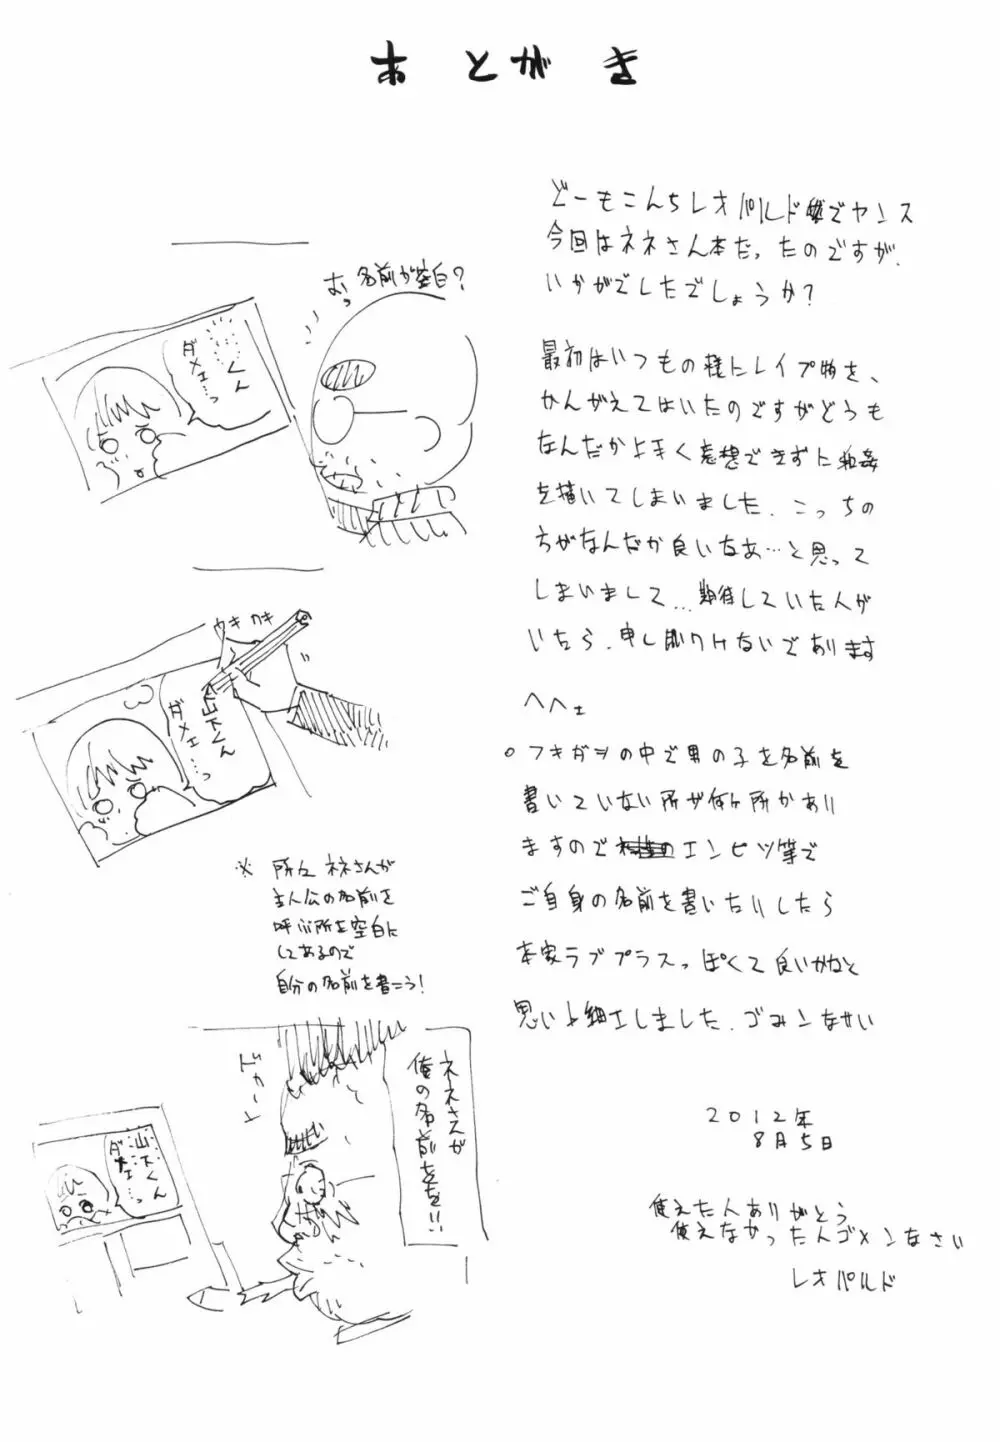 あとがき
どーもこんちレオパルドでヤンス
今回はネネさん本だったのですが、
いかがでしたでしょうか?
最初はいつもの様にレイプ物を、
かんがえてはいたのですがどうも
なんだか上手く妄想できずに和姦
を描いてしまいました、こっちの
方がなんだか良いなあ…と思って
しまいまして…期待していた人が
いたら、申し訳けないであります
へへェ
○フキダシの中で男の子を名前を
書いていない所が何ヶ所かあり
ますのでエンピツ等で
ご自身の名前を書いたりしたら
本家ラブプラスっぽくて良いかなと
思い小細工しました、ゴメンなサい
2012年
8月5日
使えた人ありがとう
使えなかった人ゴメンなさい
レオパルド
むっ 名前が空白?
くん
ダメェ…っ
カキ カキ
山下くん
ダメェ…っ
※ 所々ネネさんが
主人公の名前を
呼ぶ所を空白に
してあるので
自分の名前を書こう!
ネネさんが
俺の名前をを!!
ドカーン
山下くん
ダメェ…っ